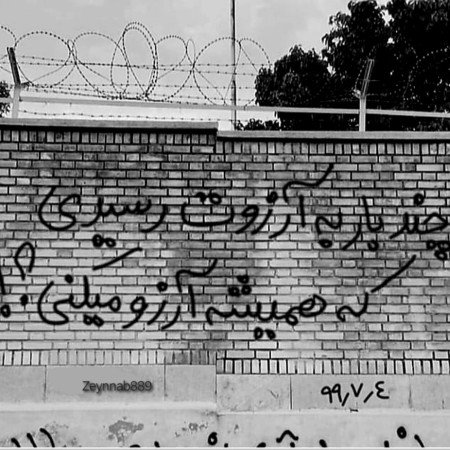 چند بار به آرزوت رسیدی
که همیشه آرزو میکنی؟!
Zeynnab889
۹۹٫۷٫٤